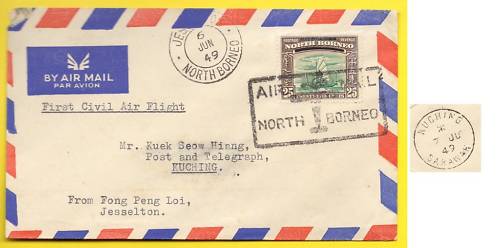 BY AIR MAIL
PAR AVION
6
JUN
49
NORTH BORNEO
POSTAGE REVENUE
NORTH BORNEO
25 25
AIR MAIL
NORTH BORNEO
First Civil Air Flight
Mr. Kuek Seow Hiang,
Post and Telegraph,
KUCHING.
From Fong Peng Loi,
Jesselton.
KUCHING
7 JU
49
SARAWAK